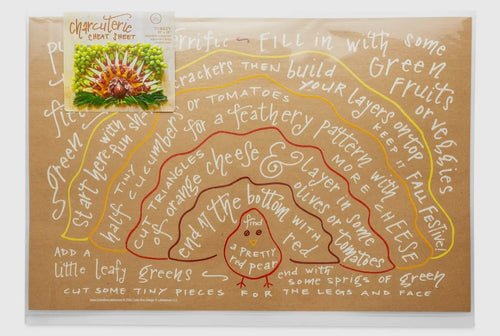 charcuterie
CHEAT SHEET
pu
rrific - FILL IN with some
green fruits or veggies
fi
green
Start here with fun sh
crackers THEN build YOUR LAYERS on top
KEEP it FALL FESTIVE!
half tiny cucumbers or TOMATOES for a feathery pattern with MORE CHEESE
CUT TRIANGLES of orange cheese & layer in olives or tomatoes
end AT the bottom with red
find
a PRETTY
red pear
ADD A
little leafy greens
end with
some sprigs of green
CUT SOME TINY PIECES FOR THE LEGS AND FACE